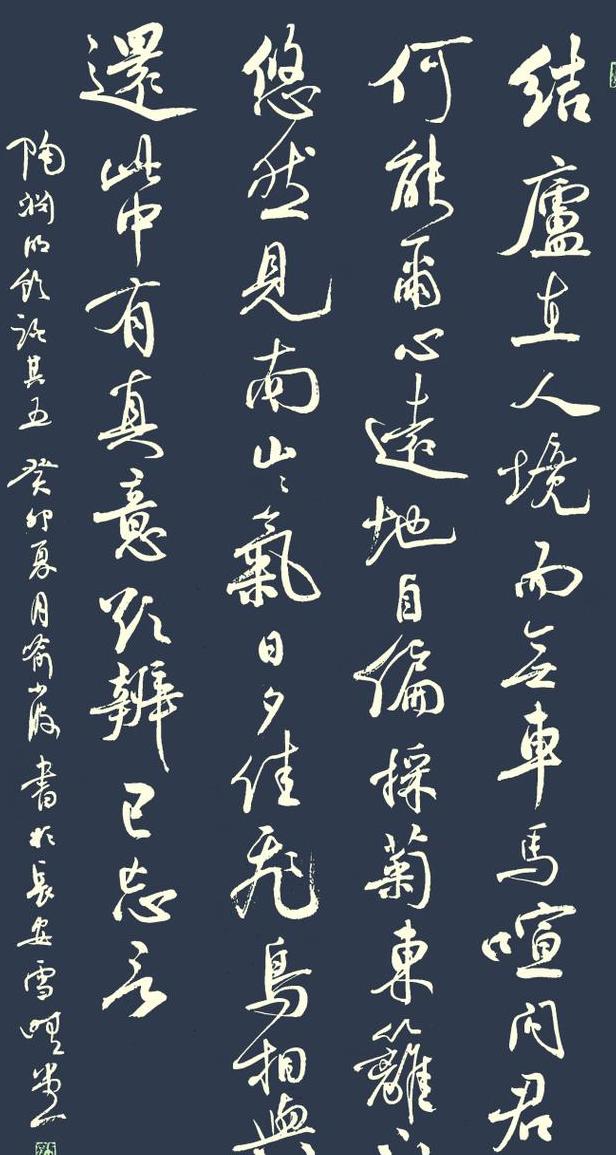 結廬在人境而無車馬喧問君
何能爾心遠地自偏採菊東籬下
悠然見南山〻氣日夕佳飛鳥相與
還此中有真意欲辨已忘言
陶淵明飲酒其五 癸卯夏月 書於長安雪堂